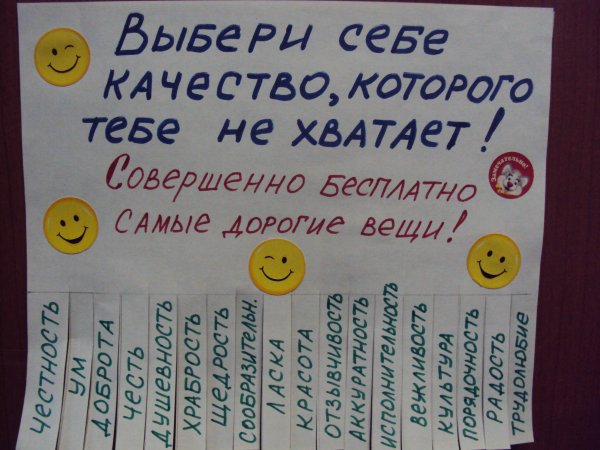 Выбери себе
качество, которого
тебе не хватает!
Совершенно бесплатно
самые дорогие вещи!
Замечательно!
честность
ум
доброта
честь
душевность
храбрость
щедрость
сообразительн.
ласка
красота
отзывчивость
аккуратность
исполнительность
вежливость
культура
порядочность
радость
трудолюбие